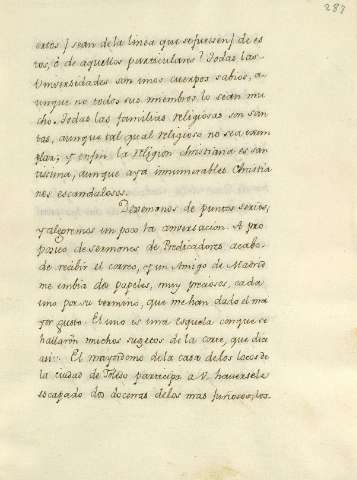 283
estos / sean de la linea que se fuessen / de es
tos, ó de aquellos particulares? Todas las
Universidades son unos cuerpos sabios, a-
unque no todos sus miembros lo sean mu
cho. Todas las familias religiosas son san
tas, aunque tal qual religioso no sea exem
plar; y enfin la religion christiana es san
tissima, aunque aya innumerables Christia
nos escandalosos.
Dexemonos de puntos serios,
y alegremos un poco la conversacion. A pro
posito de sermones de Predicadores acabo
de recibir el correo, y un Amigo de Madrid
me embia dos papeles, muy preciosos, cada
uno por su termino, que me han dado el ma
yor gusto. El uno es una esquela con que se
hallaron muchos sugetos de la corte, que dice
asi: El mayordomo de la casa de los locos de
la ciudad de Toledo participa a V. haversele
escapado dos docenas de los mas furiosos, los